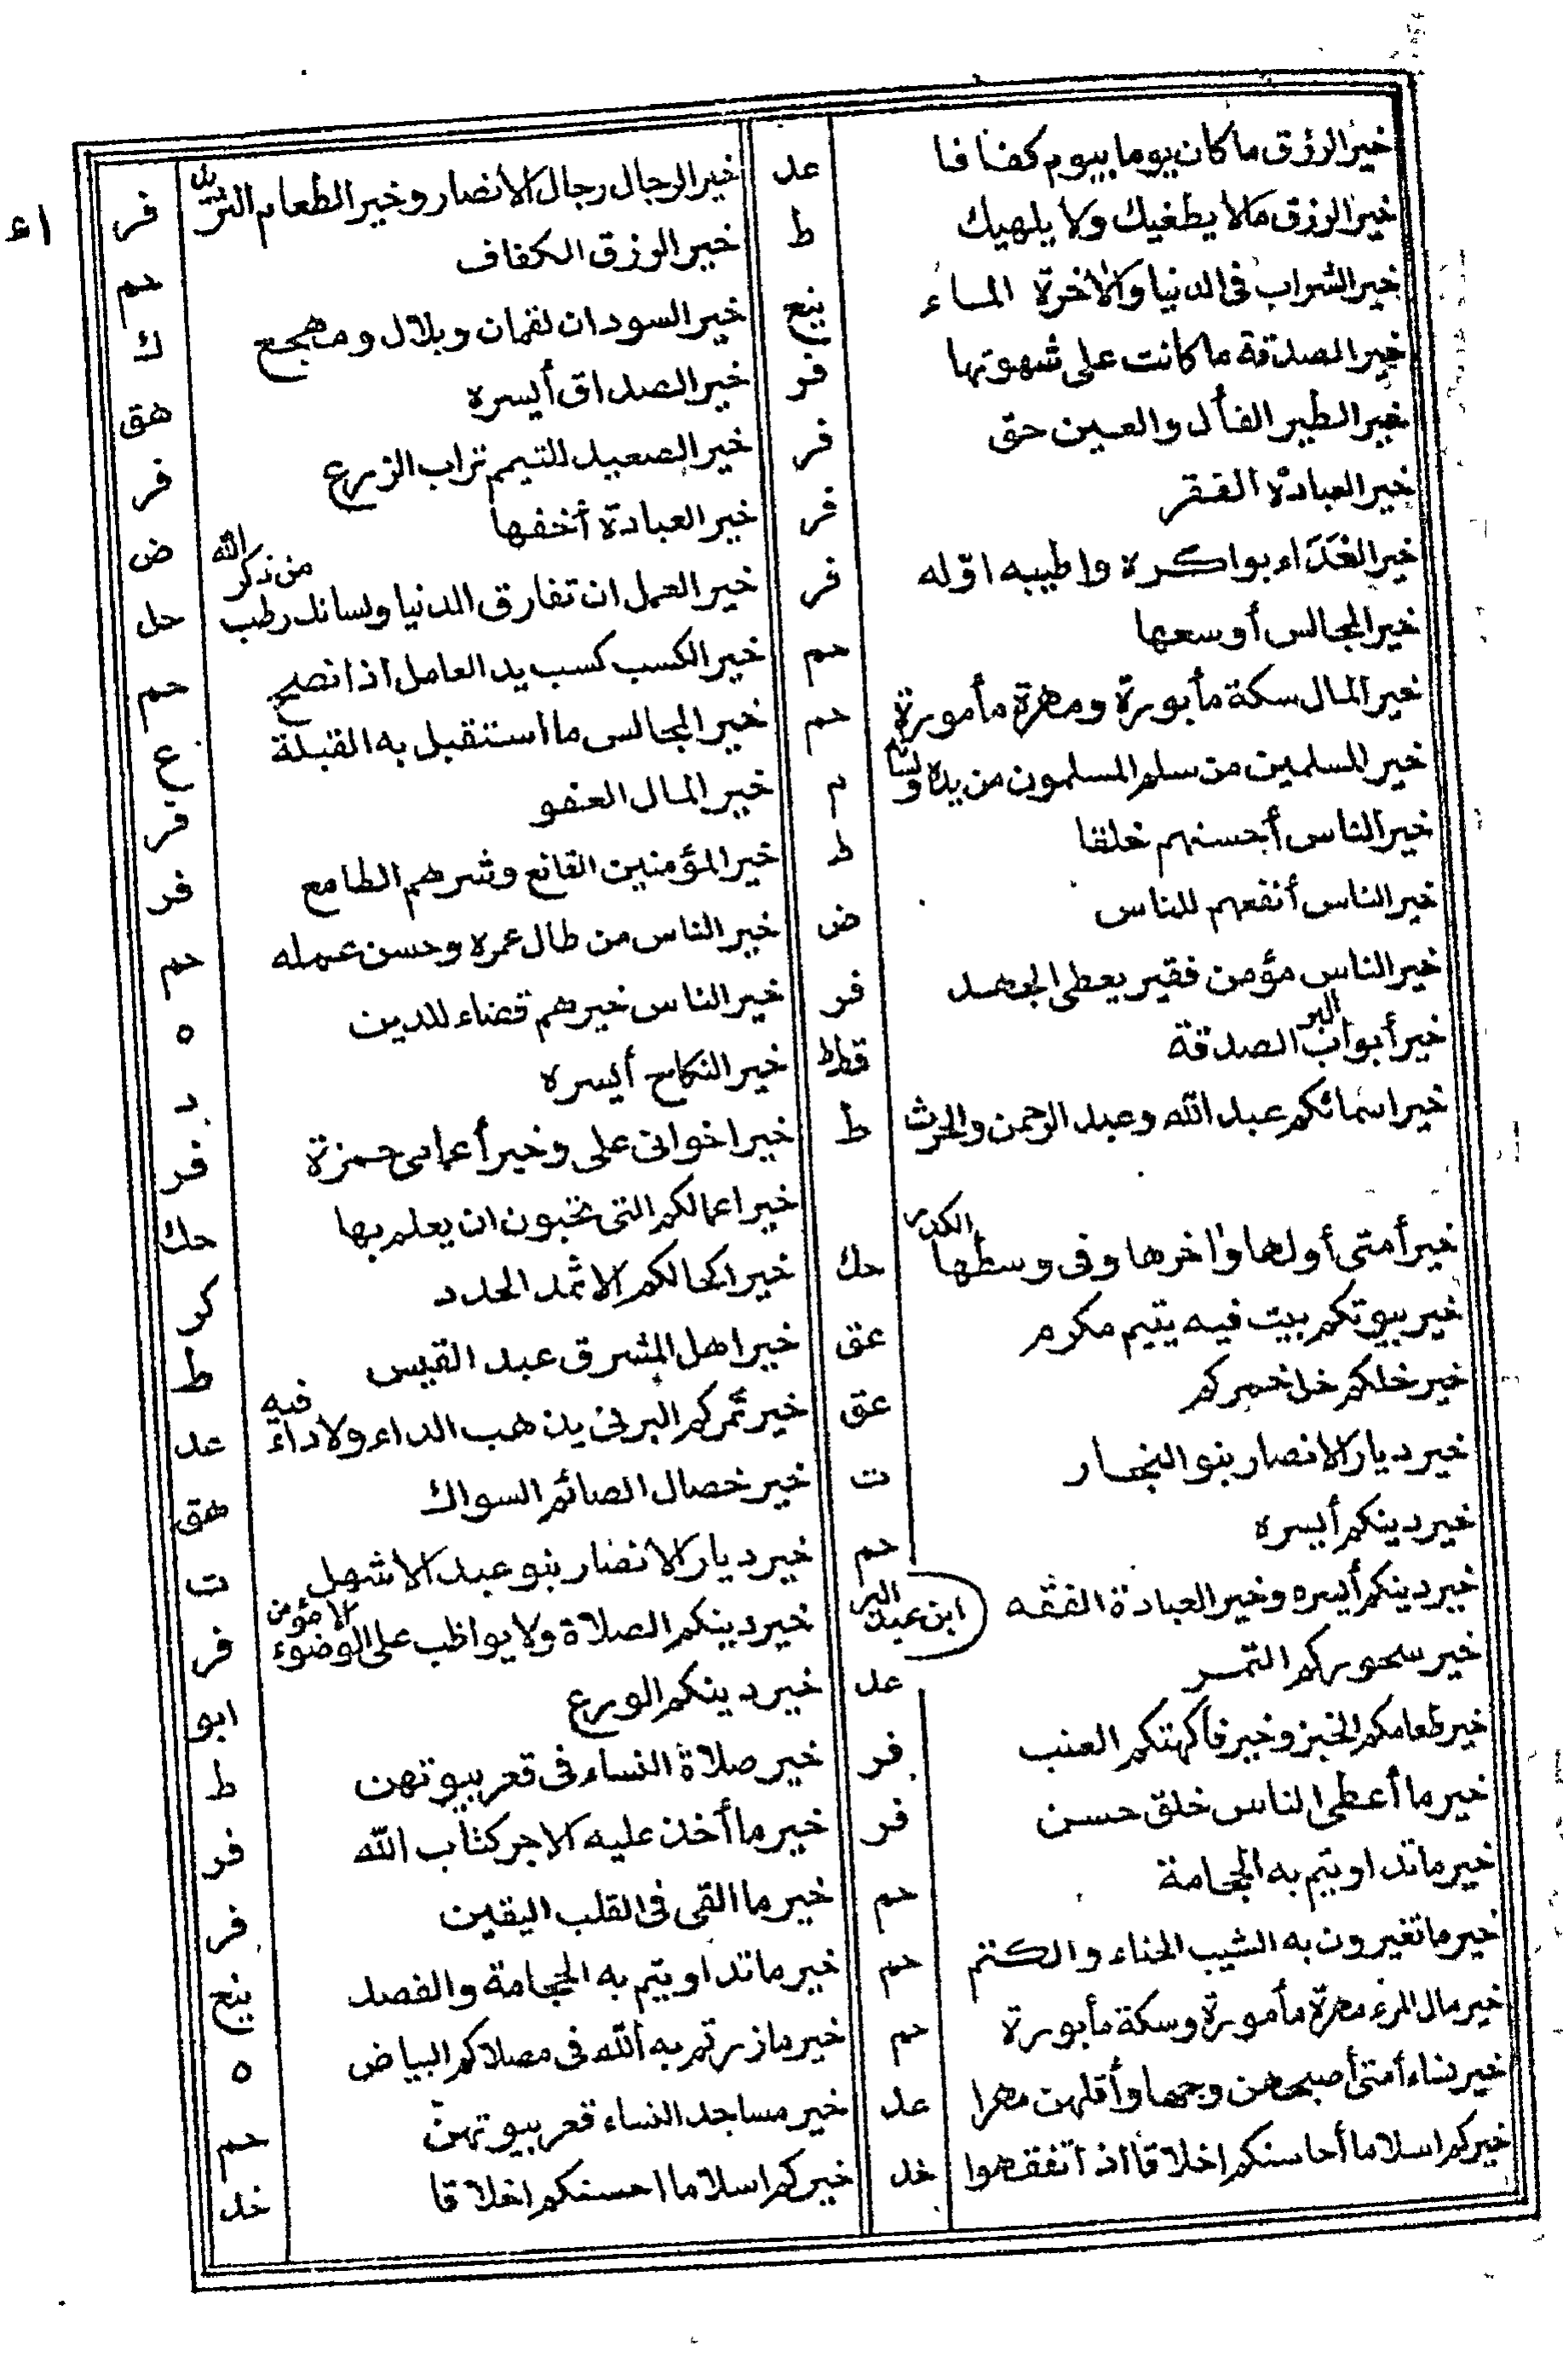 خير الرزق ما كان يوما بيوم كفافا عد
خير الرزق مالا يطغيك ولا يلهيك ط
خير الشراب فى الدنيا والآخرة الماء ينع
خير الصدقة ما كانت على شهوتها فر
خير الطير الفأل والعين حق فر
خير العبادة الفقر فر
خير الغداء بواكره واطيبه اوّله فر
خير المجالس أوسعها حم
خير المال سكة مأبورة ومهرة مأمورة حم
خير المسلمين من سلم المسلمون من يده ولسانه م
خير الناس أحسنهم خلقا ط
خير الناس أنفعهم للناس ض
خير الناس مؤمن فقير يعطى الجهد فر
خير أبواب البر الصدقة قطط
خير اسمائكم عبد الله وعبد الرحمن والحرث ط
خير أمتى أولها وآخرها وفى وسطها الكدر حك
خير بيوتكم بيت فيه يتيم مكرم عق
خير خلكم خل خمركم عق
خير ديار الانصار بنو النجار ت
خير دينكم أيسره حم
خير دينكم أيسره وخير العبادة الفقه ابن عبد البر
خير سحوركم التمر عد
خير طعامكم الخبز وخير فاكهتكم العنب فر
خير ما أعطى الناس خلق حسن فر
خير ما تداويتم به الحجامة حم
خير ما تغيرون به الشيب الحناء والكتم حم
خير مال المرء مهرة مأمورة وسكة مأبورة حم
خير نساء أمتى أصبحهن وجها وأقلهن مهرا عد
خيركم اسلاما أحاسنكم اخلاقا اذا تفقهوا خد
خير الرجال رجال الانصار وخير الطعام الثريد فر
خير الرزق الكفاف حم
خير السودان لقمان وبلال ومهجع ك
خير الصداق أيسره هق
خير الصعيد للتيمم تراب الزرع فر
خير العبادة أخفها ض
خير العمل ان تفارق الدنيا ولسانك رطب من ذكر الله حل
خير الكسب كسب يد العامل اذا نصح حم
خير المجالس ما استقبل به القبلة ع
خير المال العفو فر
خير المؤمنين القانع وشرهم الطامع فر
خير الناس من طال عمره وحسن عمله حم
خير الناس خيرهم قضاء للدين ه
خير النكاح أيسره د
خير اخوانى على وخير أعمامى حمزة فر
خير اعمالكم التى تحبون ان يعلم بها حك
خير اكحالكم الاثمد الحدد كر
خير اهل المشرق عبد القيس ط
خير تمركم البرنى يذهب الداء ولا داء فيه عد
خير خصال الصائم السواك هق
خير ديار الانصار بنو عبد الاشهل ت
خير دينكم الصلاة ولا يواظب على الوضوء الا مؤمن فر
خير دينكم الورع ابو
خير صلاة النساء فى قعر بيوتهن ط
خير ما أخذ عليه الاجر كتاب الله فر
خير ما القى فى القلب اليقين فر
خير ما تداويتم به الحجامة والفصد ينع
خير ما زرتم به الله فى مصلاكم البياض ه
خير مساجد النساء قعر بيوتهنّ حم
خيركم اسلاما احسنكم اخلاقا خد